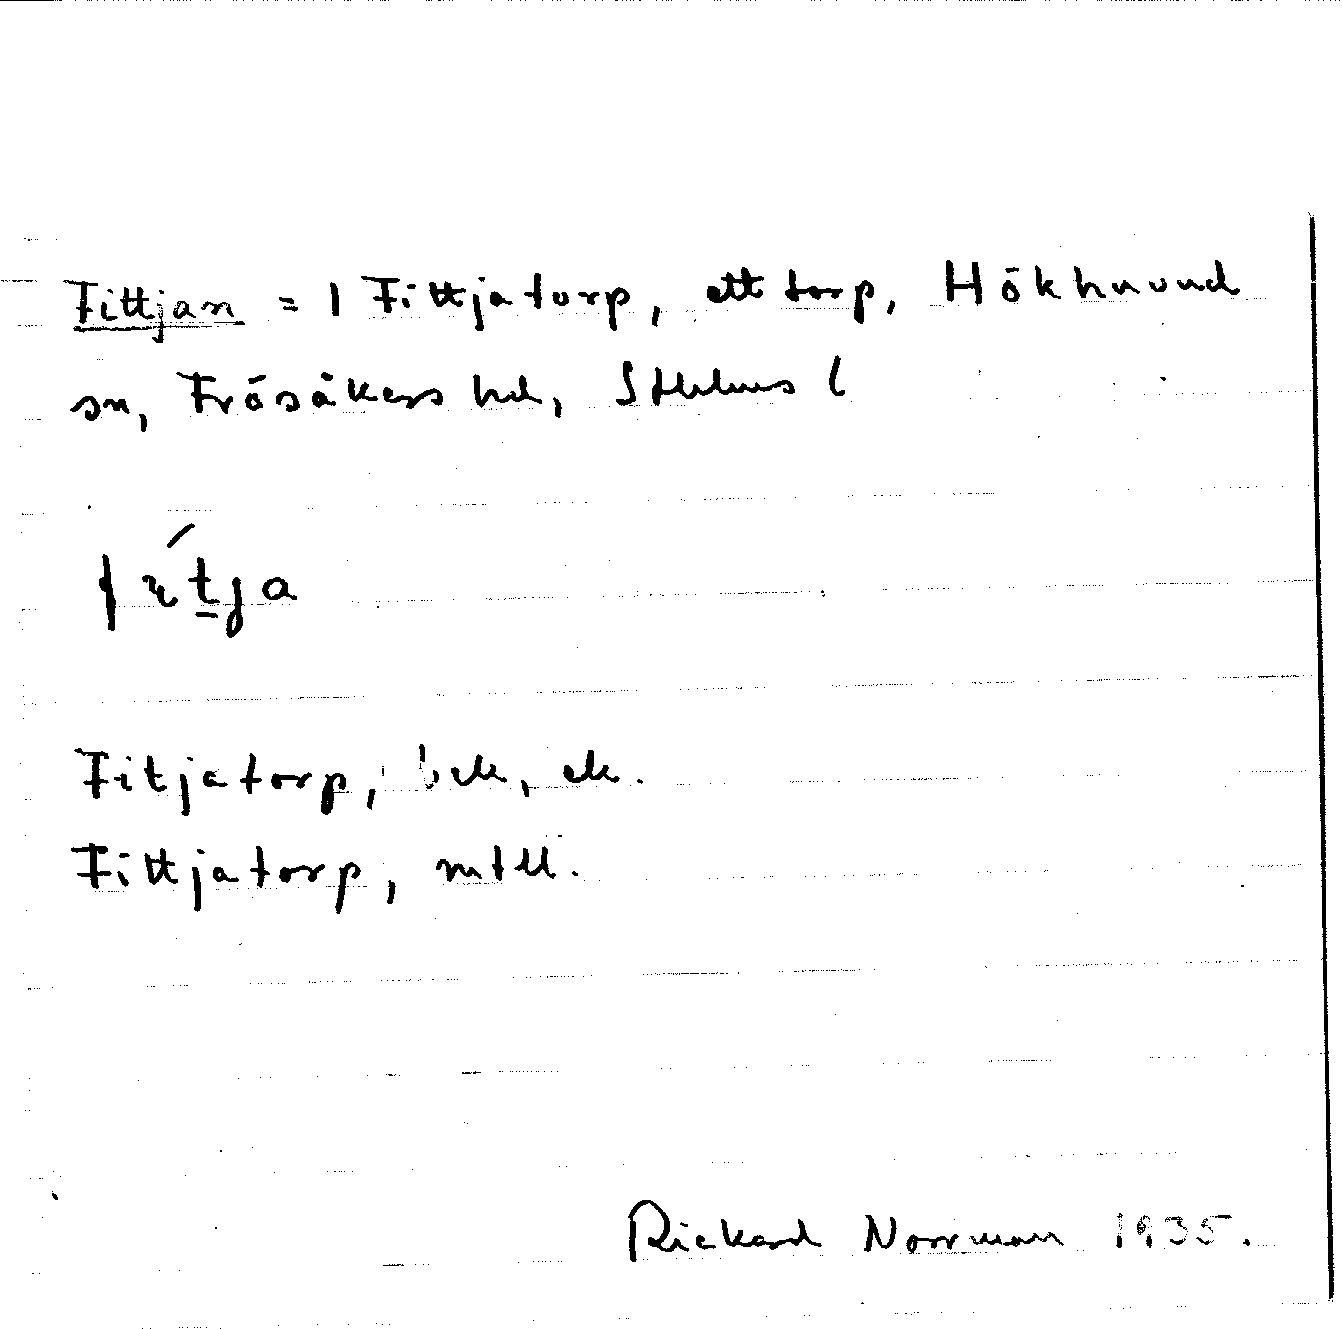 Fittjan = 1 Fittjatorp, ett torp, Hökhuvud
sn, Frösåkers hd, Sthlms l
fıt̲ja
Fitjatorp, bek, ek.
Fittjatorp, mtll.
Rickard Norrman 1935.